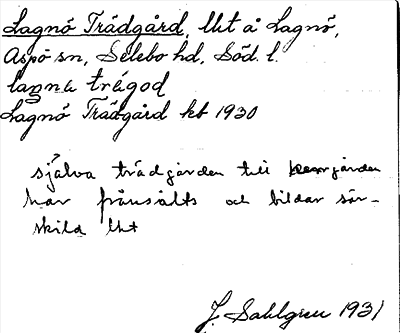 Lagnö Trädgård, lht å Lagnö,
Aspö sn, Selebo hd, Söd. l.
laŋnɷ trégoḍ
Lagnö Trädgård kb 1930
själva trädgården till herrgården
har frånsålts och bildar sär-
skild lht
J. Sahlgren 1931